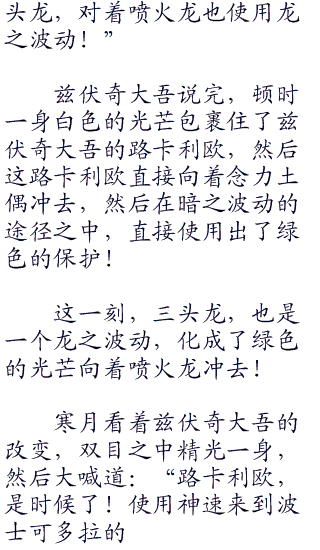 头龙，对着喷火龙也使用龙
之波动！”
兹伏奇大吾说完，顿时
一身白色的光芒包裹住了兹
伏奇大吾的路卡利欧，然后
这路卡利欧直接向着念力土
偶冲去，然后在暗之波动的
途径之中，直接使用出了绿
色的保护！
这一刻，三头龙，也是
一个龙之波动，化成了绿色
的光芒向着喷火龙冲去！
寒月看着兹伏奇大吾的
改变，双目之中精光一身，
然后大喊道：“路卡利欧，
是时候了！使用神速来到波
士可多拉的